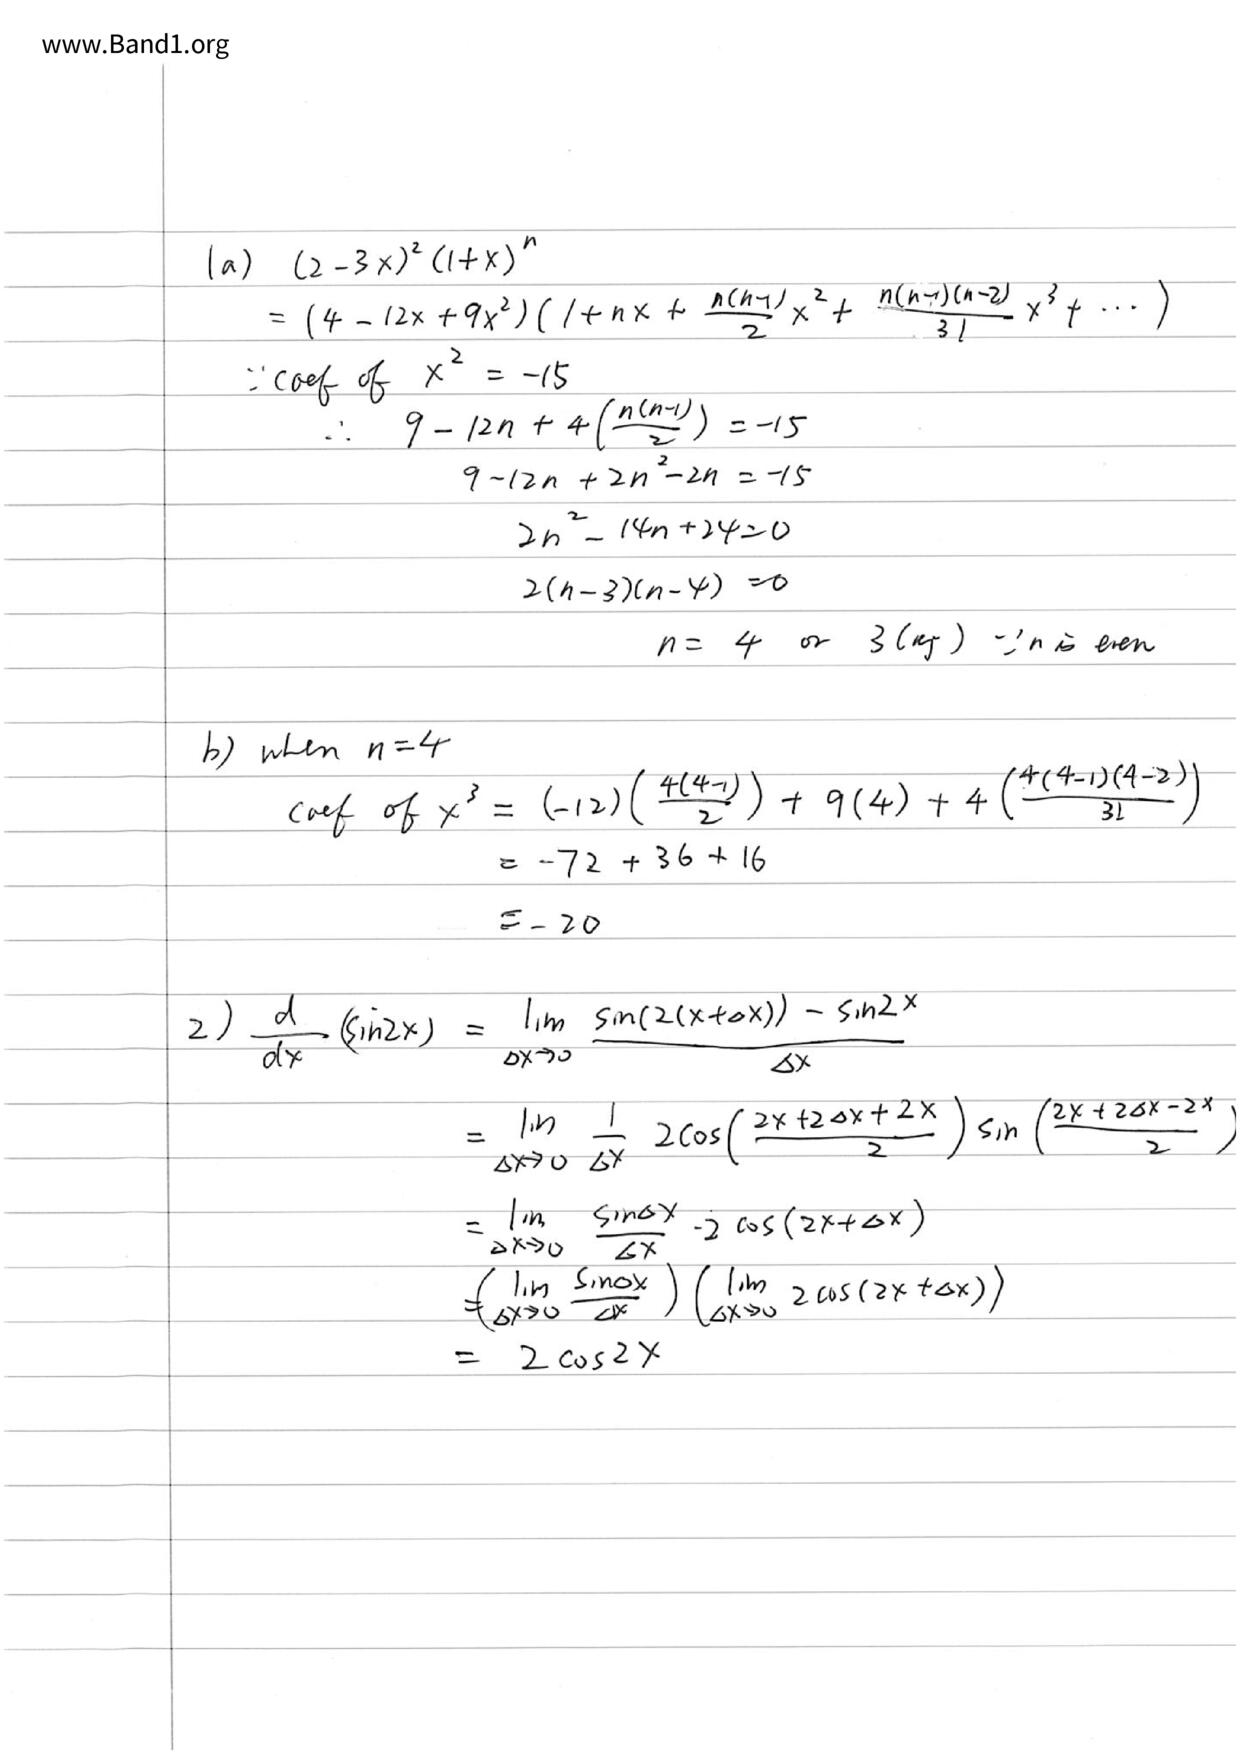 www.Band1.org
1a) (2-3x)² (1+x)ⁿ
= (4 - 12x + 9x²) ( 1 + nx + n(n-1)/2 x² + n(n-1)(n-2)/3! x³ + ... )
∵ coef of x² = -15
∴ 9 - 12n + 4 (n(n-1)/2) = -15
9 - 12n + 2n² - 2n = -15
2n² - 14n + 24 = 0
2(n-3)(n-4) = 0
n = 4 or 3 (rej) ∵ n is even
b) when n = 4
coef of x³ = (-12) (4(4-1)/2) + 9(4) + 4 (4(4-1)(4-2)/3!)
= -72 + 36 + 16
= -20
2) d/dx (sin2x) = lim Δx→0 (sin(2(x+Δx)) - sin2x)/Δx
= lim Δx→0 1/Δx 2cos((2x+2Δx+2x)/2) sin((2x+2Δx-2x)/2)
= lim Δx→0 sinΔx/Δx · 2 cos(2x+Δx)
= (lim Δx→0 sinΔx/Δx) (lim Δx→0 2 cos(2x+Δx))
= 2 cos2x